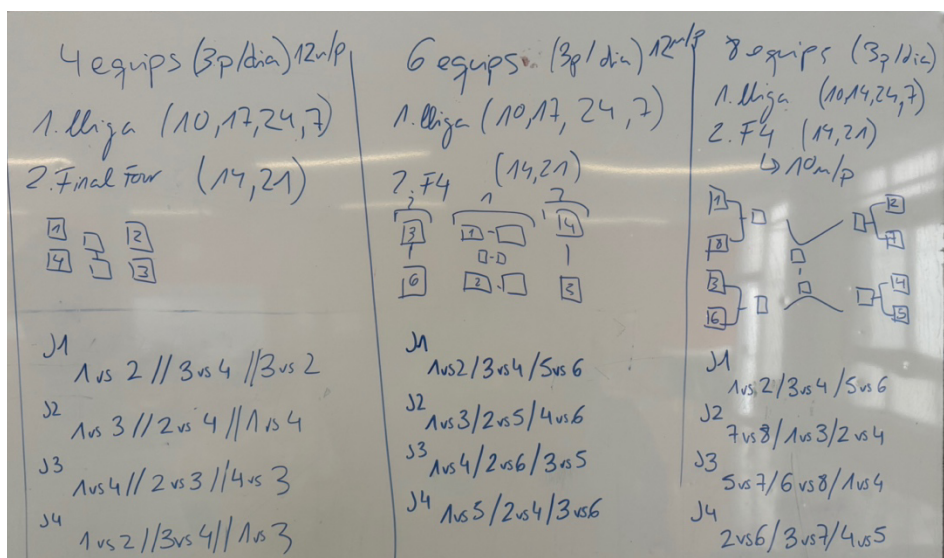 4 equips (3p/dia) 12m/p
1. lliga (10,17,24,7)
2. Final Four (14,21)
1 2
4 3
J1
1vs 2 // 3vs 4 // 3vs 2
J2
1vs 3 // 2vs 4 // 1vs 4
J3
1vs4 // 2vs3 // 4vs 3
J4
1vs2 // 3vs4 // 1vs3
6 equips (3p/dia) 12m/p
1. lliga (10,17,24,7)
2. F4 (14,21)
1
3 1 - 4
-
6 2 - 5
J1
1vs2/3vs4/5vs6
J2
1vs3/2vs5/4vs6
J3
1vs4/2vs6/3vs5
J4
1vs5/2vs4/3vs6
8 equips (3p/dia)
1. lliga (10,14,24,7)
2. F4 (14,21)
↳ 10m/p
1 2
8 7
3 4
6 5
J1
1vs2/3vs4/5vs6
J2
7vs8/1vs3/2vs4
J3
5vs7/6vs8/1vs4
J4
2vs6/3vs7/4vs5